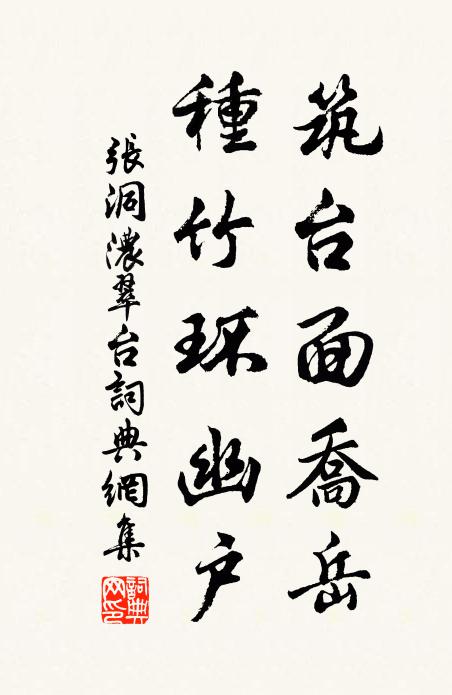 筑台面喬岳
種竹环幽户
張洞濃翠台詞典網集
詞典网印